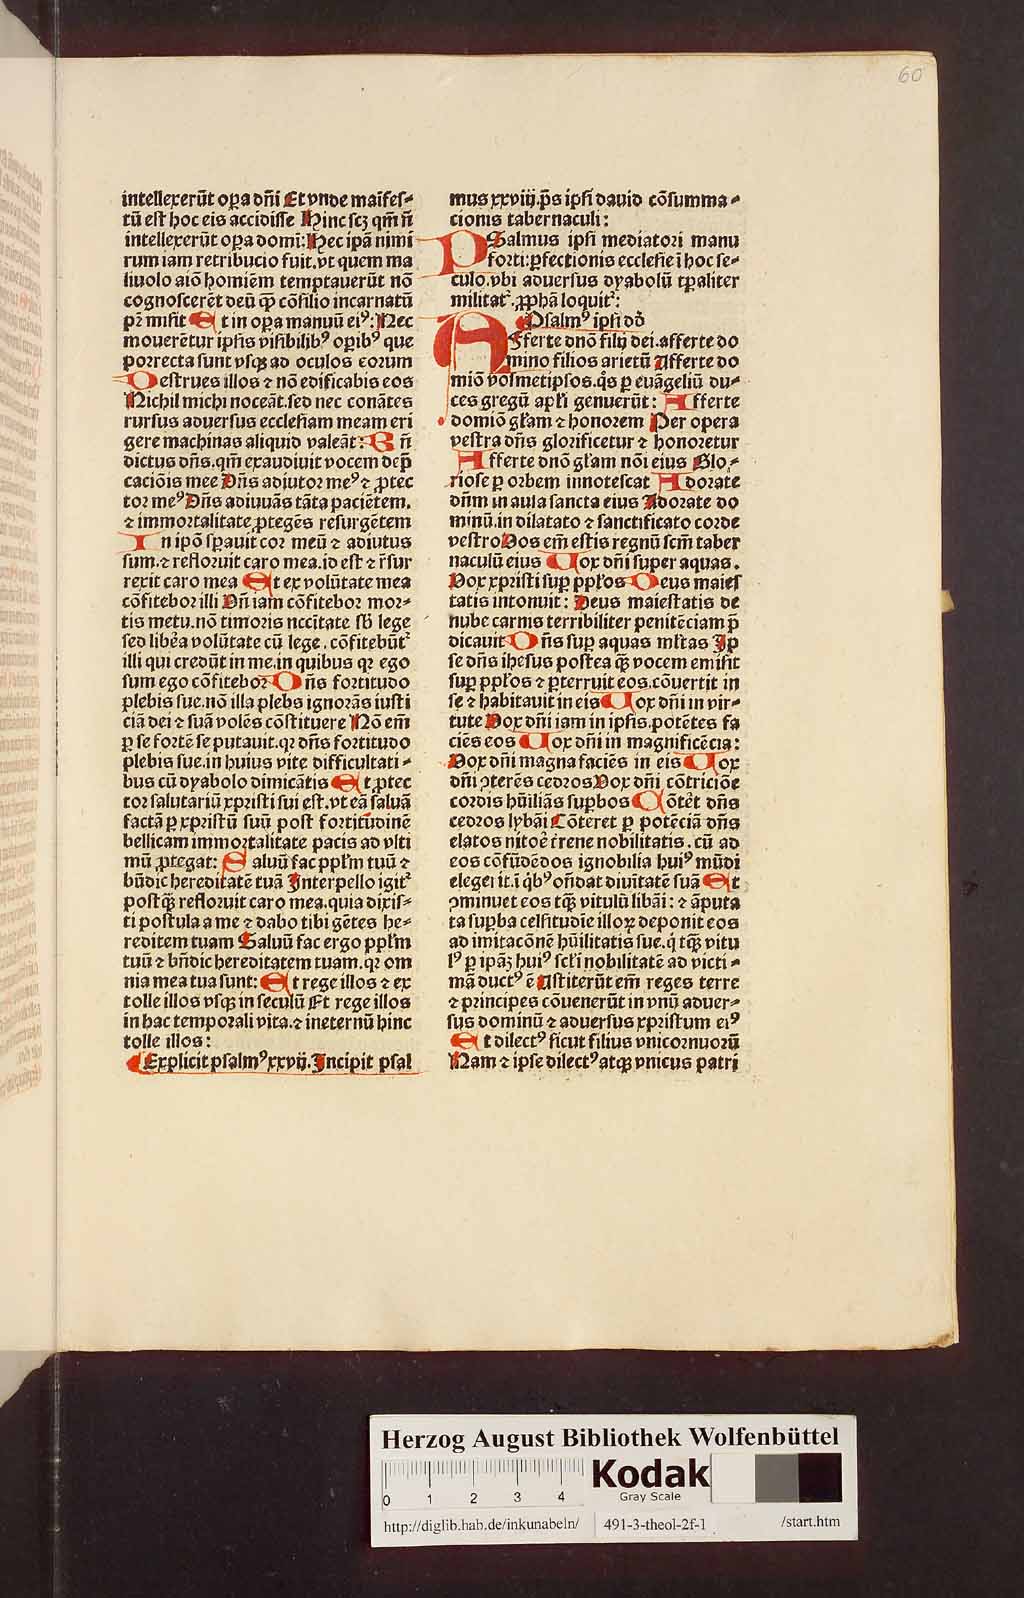 60
intellexerūt oꝑa dn̄i Et vnde maīfes⸗
tū est hoc eis accidisse Hinc scꝫ qm̄ n̄
intellexerūt oꝑa domī: Hec ipā nimi
rum iam retribucio fuit. vt quem ma
liuolo aīo homīem temptauerūt nō
cognoscerēt deū qꝫ cōsilio incarnatū
pr̄ misit Et in oꝑa manuū eiꝰ: Nec
mouerētur ipsis visibilibꝰ oꝑibꝰ que
porrecta sunt vsqꝫ ad oculos eorum
Destrues illos ⁊ nō edificabis eos
Nichil michi noceāt. sed nec conātes
rursus aduersus ecclesiam meam eri
gere machinas aliquid valeāt: Bn̄
dictus dn̄s. qm̄ exaudiuit vocem dep̄
caciōis mee Dn̄s adiutor meꝰ ⁊ ꝓtec
tor meꝰ Dn̄s adiuuās tāta paciētem.
⁊ immortalitate ꝓtegēs resurgētem
In ipō sꝑauit cor meū ⁊ adiutus
sum. ⁊ refloruit caro mea. id est ⁊ r̄sur
rexit caro mea Et ex volūtate mea
cōfitebor illi Dn̄ iam cōfitebor mor⸗
tis metu. nō timoris nccītate sb̄ lege
sed libēa volūtate cū lege. cōfitebūtᷣ
illi qui credūt in me. in quibus qꝛ ego
sum ego cōfitebor Dn̄s fortitudo
plebis sue. nō illa plebs ignorās iusti
ciā dei ⁊ suā volēs cōstituere Nō em̄
ꝑ se fortē se putauit. qꝛ dn̄s fortitudo
plebis sue. in huius vite difficultati⸗
bus cū dyabolo dimicātis Et ꝓtec
tor salutariū xpristi sui est. vt eā saluā
factā ꝑ xpristū suū post fortitudinē
bellicam immortalitate pacis ad vlti
mū ꝓtegat: Saluū fac ppl̄m tuū ⁊
bn̄dic hereditatē tuā Interpello igitᷣ
postqꝫ refloruit caro mea. quia dixis⸗
ti postula a me ⁊ dabo tibi gētes he⸗
reditem tuam Saluū fac ergo ppl̄m
tuū ⁊ bn̄dic hereditatem tuam. qꝛ om
nia mea tua sunt: Et rege illos ⁊ ex
tolle illos vsqꝫ in seculū Et rege illos
in hac temporali vita. ⁊ ineternū hinc
tolle illos:
Explicit psalmꝰ xxvij. Incipit psal
mus xxviij. p̄s ipsi dauid cōsumma⸗
cionis tabernaculi:
PSalmus ipsi mediatori manu
forti: ꝑfectionis ecclesie ī hoc se⸗
culo. vbi aduersus dyabolū tꝑaliter
militatᷣ. ꝓphā loquitᷣ:
Psalmꝰ ipsi dd̄
AFferte dnō filij dei. afferte do
mino filios arietū Afferte do
miō vosmetipsos. q̄s ꝑ euāgeliū du⸗
ces gregū apl̄i genuerūt: Afferte
domiō gl̄am ⁊ honorem Per opera
vestra dn̄s glorificetur ⁊ honoretur
Afferte dnō gl̄am nōi eius Glo⸗
riose ꝑ orbem innotescat Adorate
dn̄m in aula sancta eius Adorate do
minū. in dilatato ⁊ sanctificato corde
vestro Vos em̄ estis regnū scm̄ taber
naculū eius Vox dn̄i super aquas.
Vox xpristi suꝑ ppl̄os Deus maies
tatis intonuit: Deus maiestatis de
nube carnis terribiliter penitēciam p̄
dicauit Dn̄s suꝑ aquas ml̄tas Ip
se dn̄s ihesus postea qꝫ vocem emisit
suꝑ ppl̄os ⁊ ꝑterruit eos. cōuertit in
se ⁊ habitauit in eis Vox dn̄i in vir⸗
tute Vox dn̄i iam in ipsis. potētes fa
ciēs eos Vox dn̄i in magnificēcia:
Vox dn̄i magna faciēs in eis Vox
dn̄i ꝯterēs cedros Vox dn̄i cōtriciōe
cordis hūiliās suꝑbos Cōtēt dn̄s
cedros lybāi Cōteret ꝑ potēciā dn̄s
elatos nitoē t̄rene nobilitatis. cū ad
eos cōfūdēdos ignobilia huiꝰ mūdi
elegeīt. ī q̄bꝰ on̄dat diuītatē suā Et
ꝯminuet eos tqꝫ vitulū libāi: ⁊ āputa
ta suꝑba celsitudīe illoꝝ deponit eos
ad imitacōnē hūilitatis sue. q̄ tqꝫ vitu
lꝰ ꝑ ipāꝫ huiꝰ scl̄i nobilitatē ad victi⸗
mā ductꝰ ē Astiterūt em̄ reges terre
⁊ principes cōuenerūt in vnū aduer⸗
sus dominū ⁊ aduersus xpristum eiꝰ
Et dilectꝰ sicut filius vnicornuorū
Nam ⁊ ipse dilectꝰ atqꝫ vnicus patri
Herzog August Bibliothek Wolfenbüttel
0 1 2 3 4
Kodak
Gray Scale
http://diglib.hab.de/inkunabeln/ 491-3-theol-2f-1 /start.htm